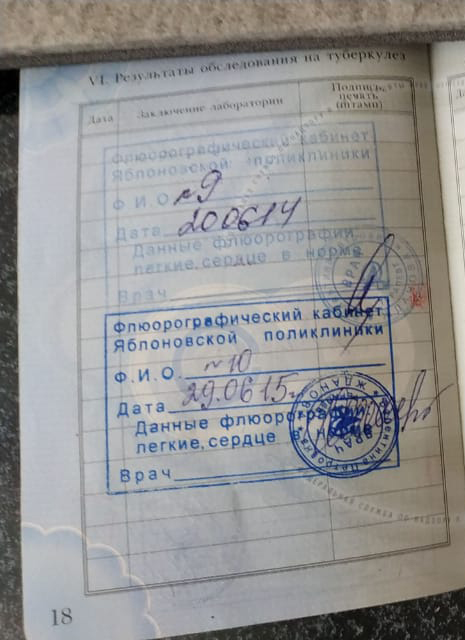 VI. Результаты обследования на туберкулез
Дата
Заключение лаборатории
Подпись,
печать
(штамп)
Флюорографический кабинет
Яблоновской поликлиники
Ф.И.О. №9
Дата 200614
Данные флюорографии:
легкие, сердце в норме
Врач
ВРАЧ
Флюорографический кабинет
Яблоновской поликлиники
Ф.И.О. №10
Дата 29.06 15г
Данные флюорографии
легкие, сердце в норме
Врач
ЖДАНОВА
ВРАЧ
18